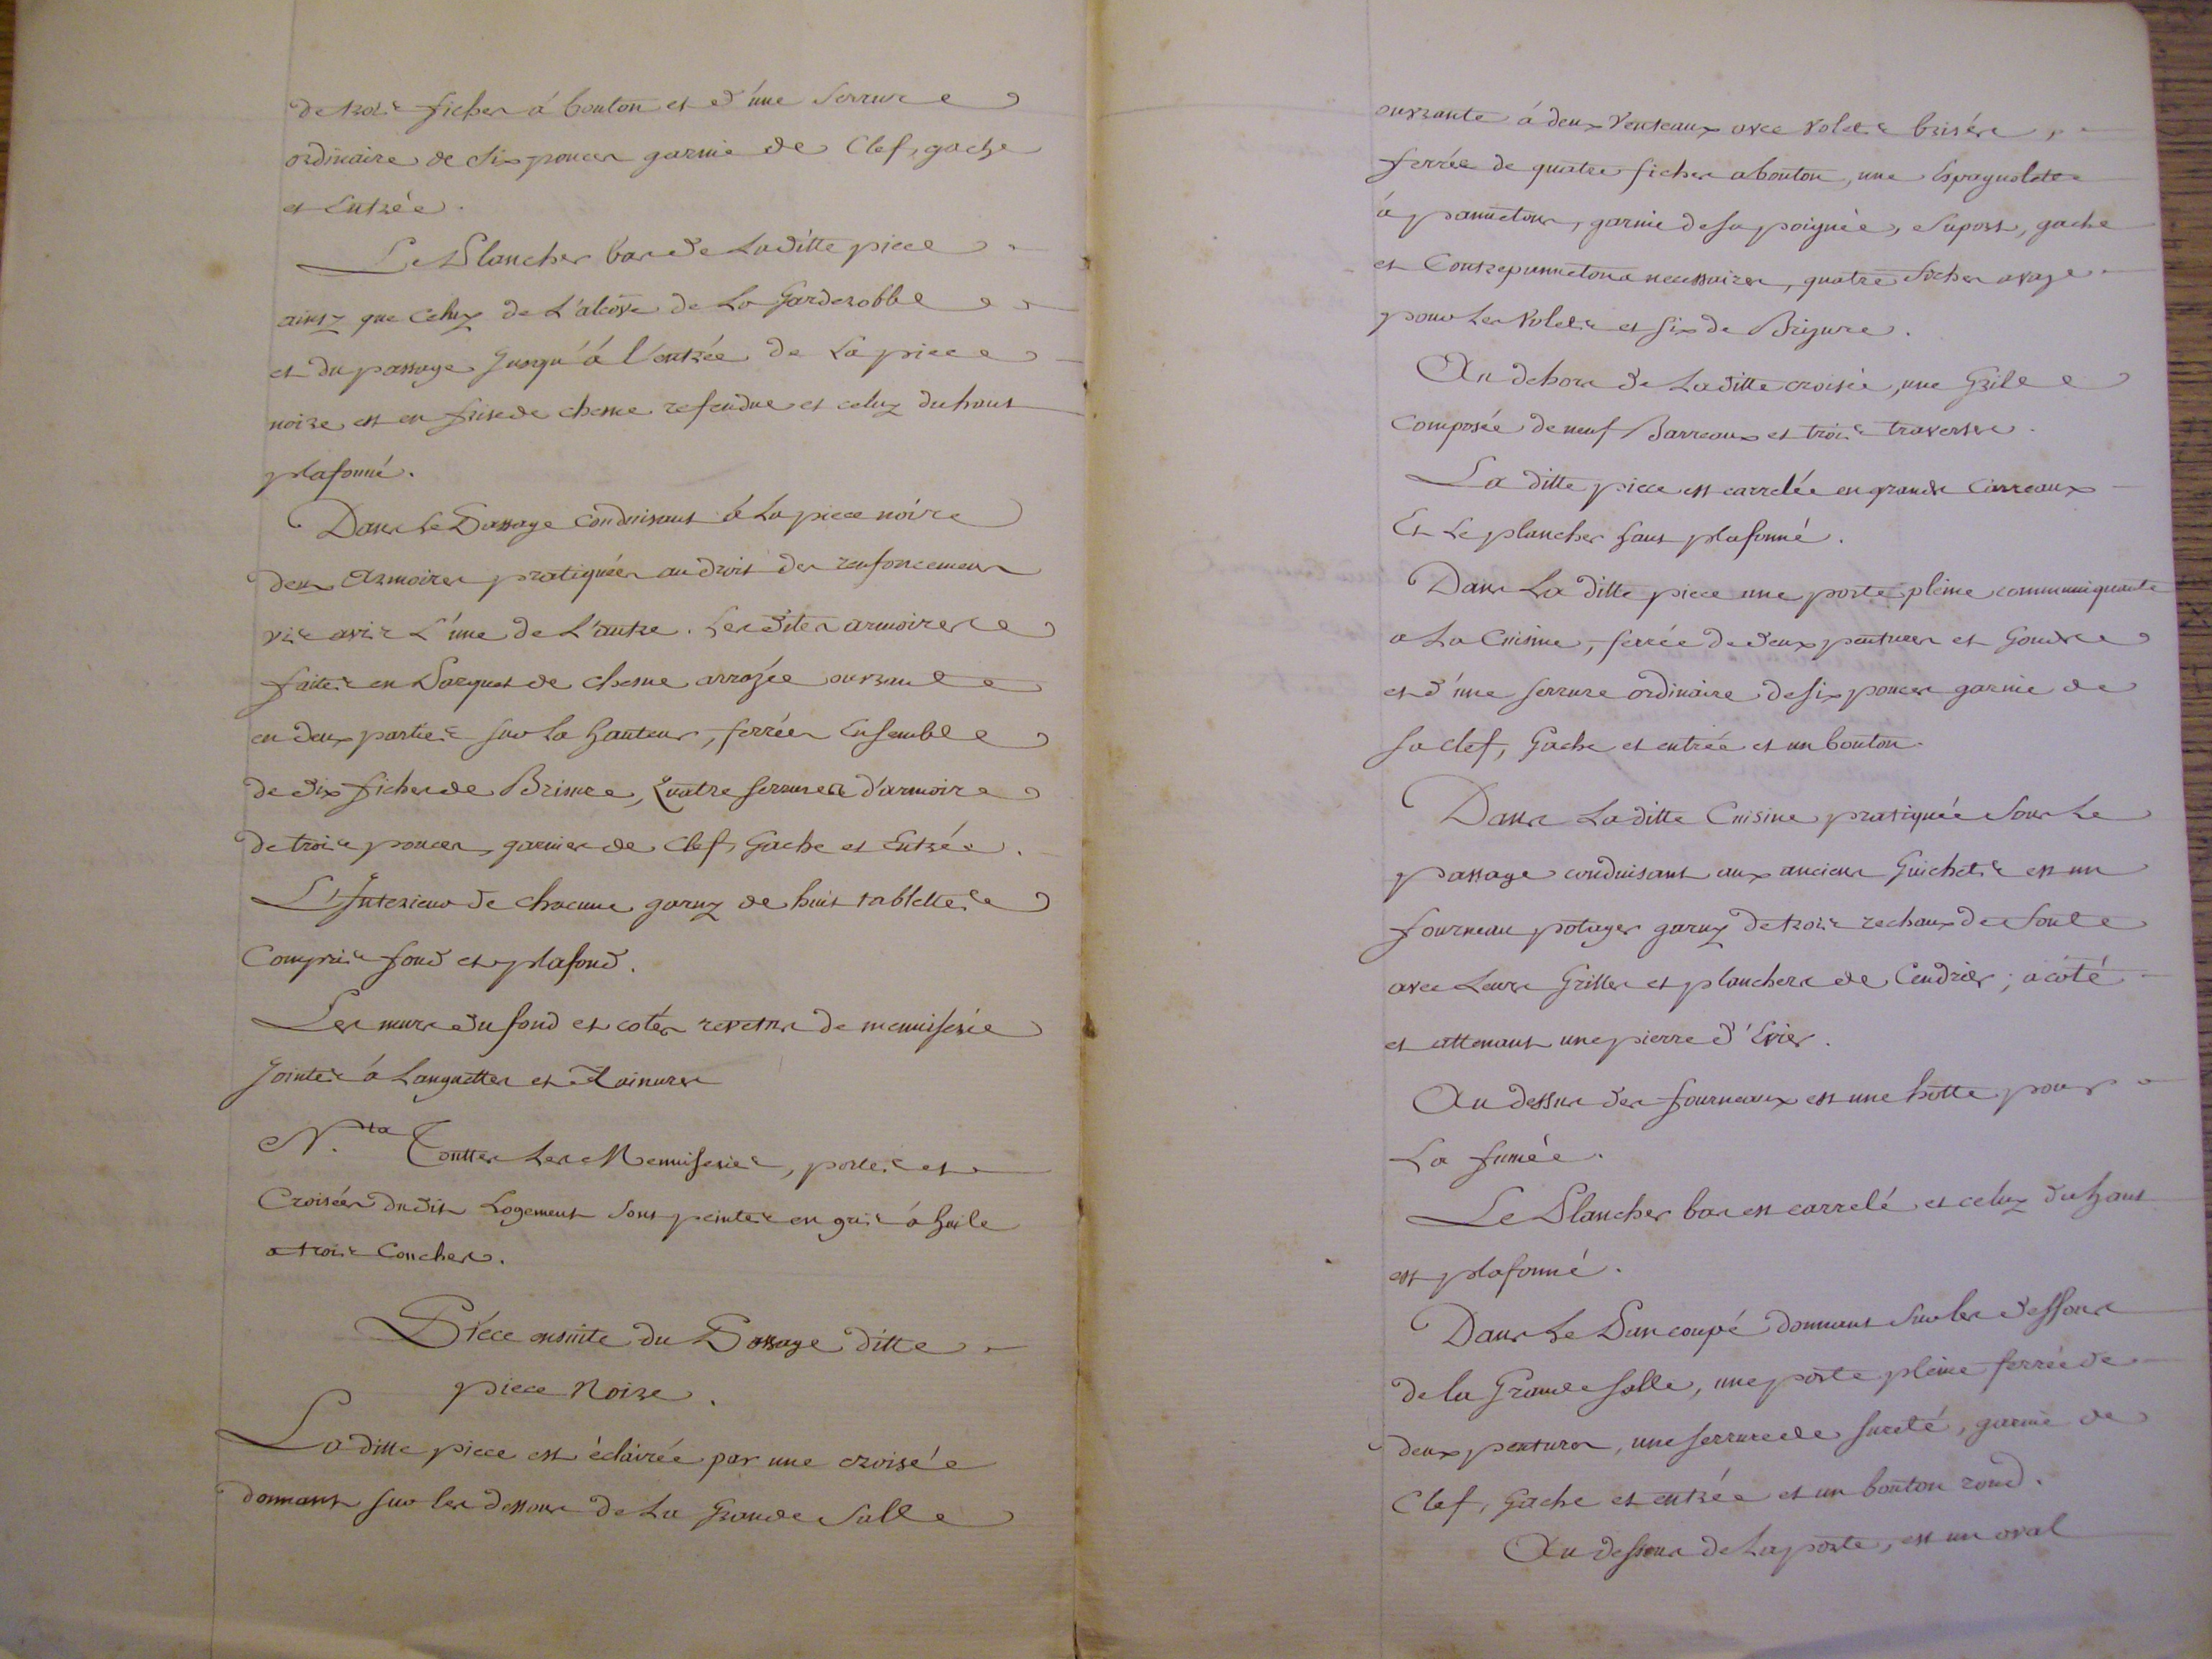 de trois fiches à bouton et d'une Serrure
ordinaire de Six pouces garnie de Clef, gache
et Entrée.
Le Plancher bas de Laditte piece
ainsy que Celuy de L'alcove de La Garderobbe
et du passage Jusqu'à l'entrée de La piece
noire est en frise de chesne refendue et celuy du haut
plafonné.
Dans Le Passage Conduisant à La piece noire
deux Armoires pratiquées au droit des renfoncemens
vis avis L'une de L'autre. Les dites armoires
faites en Parquet de chesne arrazée ouvrante
en deux parties sur La hauteur, ferrées Ensemble
de dix fiches de Brisure, Quatre serrures d'armoire
de trois pouces, garnies de Clef, Gache et Entrée.
L'Interieur de chacune garny de huit tablettes
Compris fond et plafond.
Les murs du fond et cotés revetus de menuiserie
Jointes à Languettes et Rainures
N.ta Touttes Les Menuiseries, portes et
Croisées dudit Logement Sont peintes en gris à huile
a trois Couches.
Piéce ensuite du Passage ditte
piece Noire.
Laditte piece est éclairée par une croisée
donnant sur les dessous de La Grande Salle
ouvrante à deux Venteaux avec volets brisés,
ferrée de quatre fiches a bouton, une Espagnolete
à pannetons, garnie de sa poignée, Suport, gache
et Contrepannetons necessaires, quatre fiches avaze
pour Les Volets et six de Brizure.
Au dehors de Laditte croisée, une Grile
Composée de neuf Barreaux et trois traverses.
La ditte piece est carrelée en grands Carreaux
Et Le plancher haut plafonné.
Dans La ditte piece une porte pleine communiquante
a La Cuisine, ferrée de deux pentures et Gonds
et d'une serrure ordinaire de six pouces garnie de
sa clef, Gache et entrée et un bouton.
Dans Laditte Cuisine pratiquée Sous Le
passage conduisant aux anciens Guichets est un
fourneau potager garny de trois rechaux de fonte
avec Leurs Grilles et planchers de Cendrier; a côté
et attenant une pierre d'Evier.
Au dessus des fourneaux est une hotte pour
La fumée.
Le Plancher bas est carrelé et celuy du haut
est plafonné.
Dans Le Pan coupé donnant sur les dessous
de la Grande Salle, une porte pleine ferrée de
deux pentures, une serrure de sureté, garnie de
Clef, Gache et entrée et un bouton rond.
Au dessus de La porte, est un oval